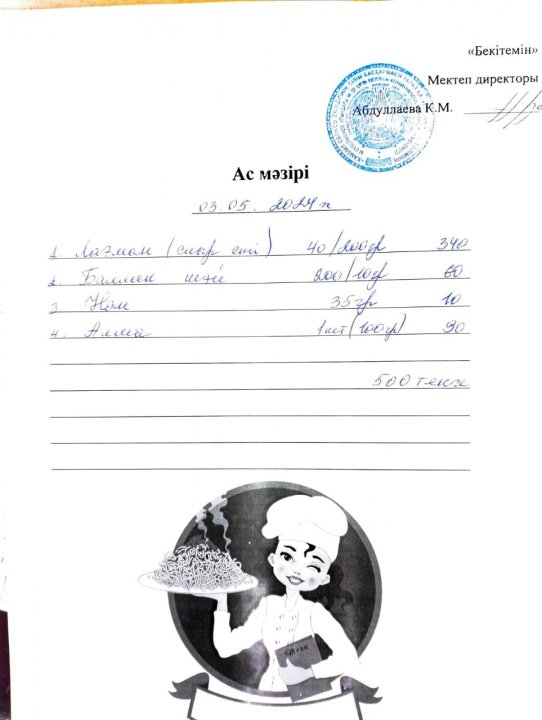 «Бекітемін»
Мектеп директоры
Абдуллаева К.М.
Ас мәзірі
03.05. 2024 ж
1. Лагман (сиыр еті) 40/200гр 340
2. Балмен шәй 200/10гр 60
3 Нан 35гр 10
4. Алма 1шт (100гр) 90
500 тенге